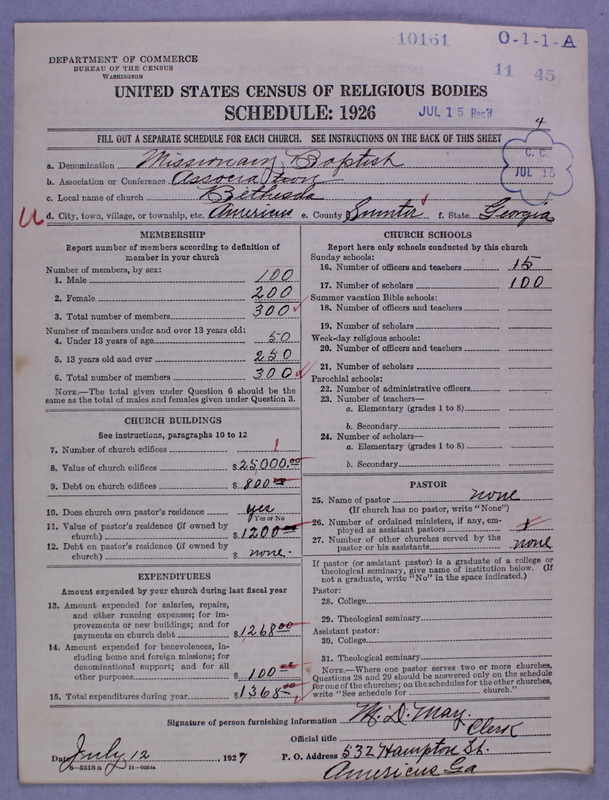 10161 O-1-1-A
11 45
DEPARTMENT OF COMMERCE
BUREAU OF THE CENSUS
WASHINGTON
UNITED STATES CENSUS OF RELIGIOUS BODIES
SCHEDULE: 1926
JUL 15 Rec'd
4
FILL OUT A SEPARATE SCHEDULE FOR EACH CHURCH. SEE INSTRUCTIONS ON THE BACK OF THIS SHEET
C. C.
JUL 15
a. Denomination Missionary Baptist
b. Association or Conference Association
c. Local name of church Bethesda
U d. City, town, village, or township, etc. Americus e. County Sumter f. State Georgia
MEMBERSHIP
Report number of members according to definition of
member in your church
Number of members, by sex:
1. Male 100
2. Female 200
3. Total number of members 300
Number of members under and over 13 years old:
4. Under 13 years of age 50
5. 13 years old and over 250
6. Total number of members 300
NOTE.—The total given under Question 6 should be
the same as the total of males and females given under Question 3.
CHURCH BUILDINGS
See instructions, paragraphs 10 to 12
7. Number of church edifices 1
8. Value of church edifices $25,000.00
9. Debt on church edifices $800.00
10. Does church own pastor's residence yes
Yes or No
11. Value of pastor's residence (if owned by
church) $1200.00
12. Debt on pastor's residence (if owned by
church) $ none.
EXPENDITURES
Amount expended by your church during last fiscal year
13. Amount expended for salaries, repairs,
and other running expenses; for im-
provements or new buildings; and for
payments on church debt $1,268.00
14. Amount expended for benevolences, in-
cluding home and foreign missions; for
denominational support; and for all
other purposes $100.00
15. Total expenditures during year $1368.00
CHURCH SCHOOLS
Report here only schools conducted by this church
Sunday schools:
16. Number of officers and teachers 15
17. Number of scholars 100
Summer vacation Bible schools:
18. Number of officers and teachers
19. Number of scholars
Week-day religious schools:
20. Number of officers and teachers
21. Number of scholars
Parochial schools:
22. Number of administrative officers
23. Number of teachers—
a. Elementary (grades 1 to 8)
b. Secondary
24. Number of scholars—
a. Elementary (grades 1 to 8)
b. Secondary
PASTOR
25. Name of pastor none
(If church has no pastor, write "None")
26. Number of ordained ministers, if any, em-
ployed as assistant pastors
27. Number of other churches served by the
pastor or his assistants none
If pastor (or assistant pastor) is a graduate of a college or
theological seminary, give name of institution below. (If
not a graduate, write "No" in the space indicated.)
Pastor:
28. College
29. Theological seminary
Assistant pastor:
30. College
31. Theological seminary
NOTE.—Where one pastor serves two or more churches,
Questions 28 and 29 should be answered only on the schedule
for one of the churches; on the schedules for the other churches,
write "See schedule for church."
Signature of person furnishing information M. D. May
Official title Clerk
Date July 12, 1927 P. O. Address 532 Hampton St.
8—5513 a 11—9054a Americus Ga